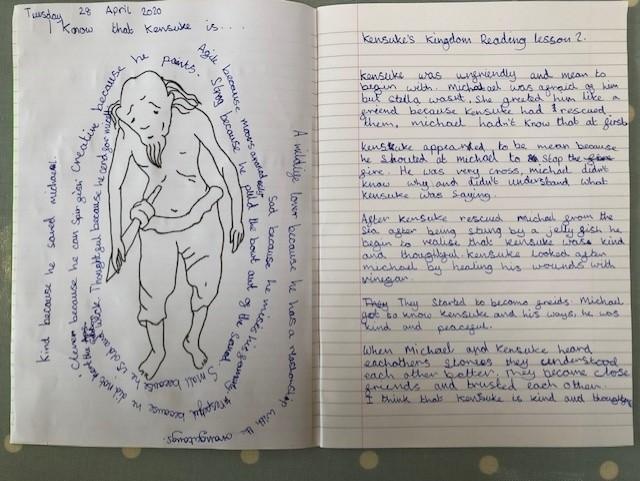 Tuesday 28 April 2020
I know that Kensuke is....
Kind because he saved michael.
Clever because he can spir gish
Creative because he paints.
Agile because moves
Strong because he pulld the boat out of the sand.
Sad because he
A wildlife lover because he has a with the orangutangs.
Small because he is old and
because he did not
Thoughtful because he
Kensuke's Kingdom Reading lesson 2.
Kensuke was unfriendly and mean to
begin with. Michael was afraid of him
but Stella wasn't, She greeted him like a
friend because Kensuke had rescued
them, michael hadn't know that at first.
Kensuke appeared to be mean because
he shouted at michael to stop the
fire. He was very cross, michael didn't
know why and didn't understand what
Kensuke was saying.
After Kensuke rescued Michael from the
sea after being stung by a jelly fish he
begin to realise that Kensuke was kind
and thoughtful. Kensuke looked after
michael by healing his wounds with
vinegar.
They They started to become freids. Michael
got to know Kensuke and his ways, he was
kind and peaceful.
When Michael and Kensuke heard
eachothers stories they understood
each other better. They became close
friends and trusted each other.
I think that Kensuke is kind and